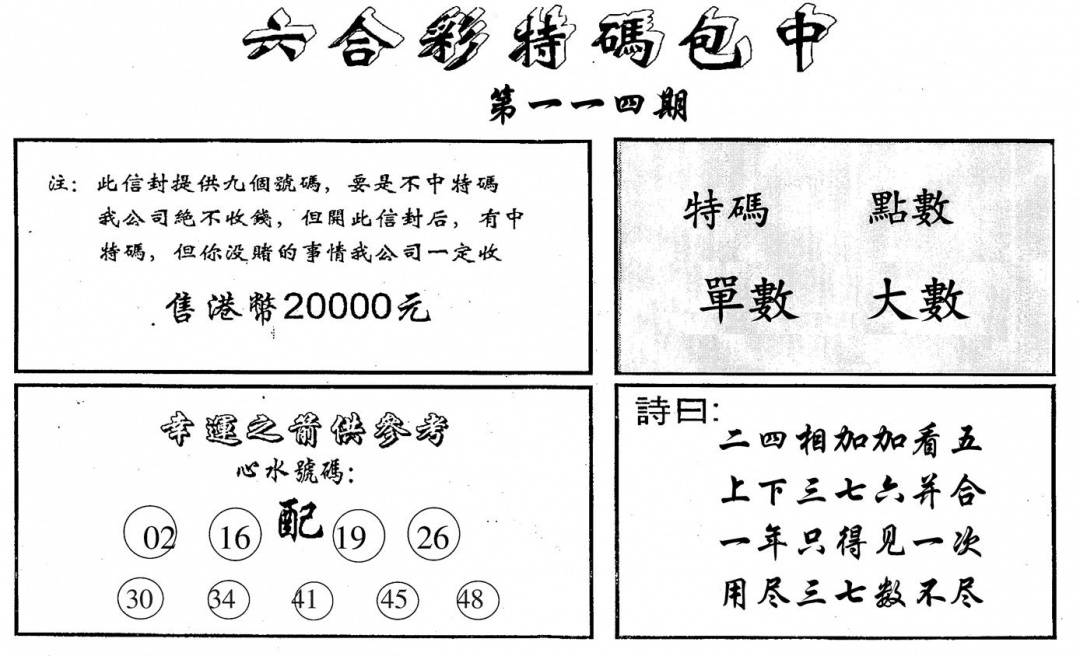 六合彩特碼包中
第一一四期
注：此信封提供九個號碼，要是不中特碼
我公司絕不收錢，但開此信封后，有中
特碼，但你没賭的事情我公司一定收
售港幣20000元
特碼 點數
單數 大數
幸運之箭供參考
心水號碼：
配
02 16 19 26
30 34 41 45 48
詩曰：
二四相加加看五
上下三七六并合
一年只得见一次
用尽三七数不尽